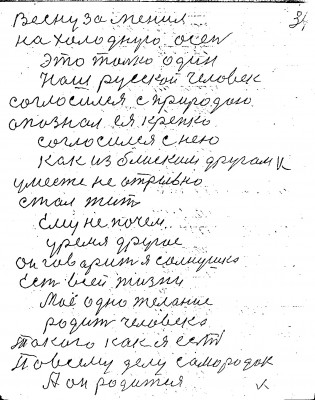 34
Весну за менил
на холодную осен
Это толко один
Наш русской человек
согласился с природою
опознал ся крепко
согласился с нею
как из блиским другам
уместе не отривно
стал жит
Ему не почем
уремя другое
он говарит я солнушко
Ест всей жизни
Моё одно желание
родит человека
Такого как я ест
По всему делу самородок
А он родится